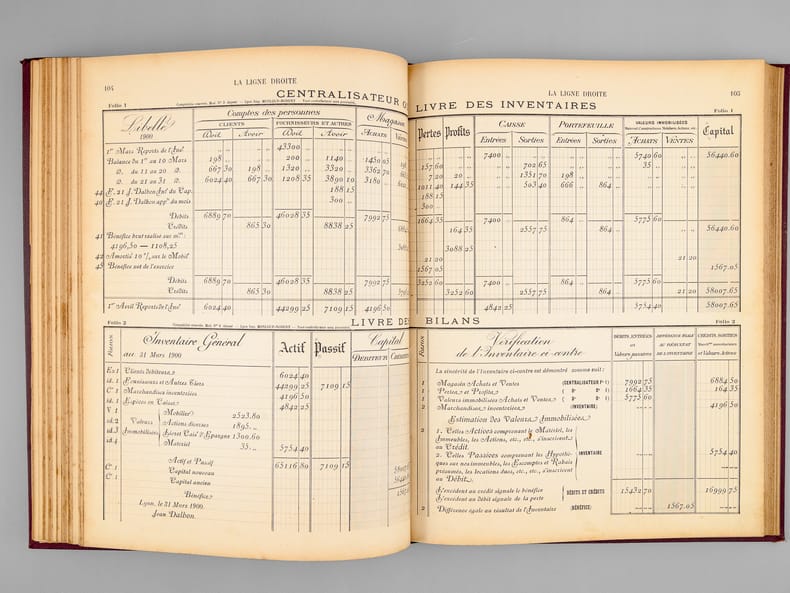 104
LA LIGNE DROITE
CENTRALISATEUR
Folio 1
Libellé
1900
Comptes des personnes
CLIENTS
FOURNISSEURS ET AUTRES
Doit
Avoir
Doit
Avoir
Magasin
ACHATS
1er Mars Reports de l'Inre 43300 ..
Balance du 1er au 10 Mars 198 .. 200 .. 1140 .. 1450 65
d°. du 11 au 20 d°. 667 30 198 .. 1320 .. 3320 .. 3362 70
d°. du 21 au 31 d°. 6024 40 667 30 1208 35 3890 10 3180 ..
44 F. 21 J. Dalbon Int du Cap. 188 15
40 F. 21 J. Dalbon appt du mois 300 ..
Débits 6889 70 46028 35 7992 75
Crédits 865 30 8838 25
41 Bénéfice brut réalisé sur mses
4196,50 — 1108,25
42 Amortit 10 % sur le Mobil
45 Bénéfice net de l'exercice
Débits 6889 70 46028 35 7992 75
Crédits 865 30 8838 25
1er Avril Reports de l'Inre 6024 40 44299 25 7109 15 4196 50
Folio 2
LIVRE DES
Folios
Inventaire Général
au 31 Mars 1900
Actif
Passif
Capital
DÉBITEUR
Ex 1 Clients Débiteurs 6024 40
id. 1 Fournisseurs et Autres Tiers 44299 25 7109 15
C. 1 Marchandises inventoriées 4196 50
id. 1 Espèces en Caisse 4842 25
V 1 Mobilier 2523.80
id. 2 Valeurs Actions diverses 1895. „
id. 3 Immobilisées Livret Caisse d'Epargne 1300.60
id. 4 Matériel 35. „ 5754 40
Actif et Passif 65116 80 7109 15
C. 1 Capital nouveau
C. 1 Capital ancien
Bénéfice
Lyon, le 31 Mars 1900.
Jean Dalbon.
LA LIGNE DROITE
105
LIVRE DES INVENTAIRES
Folio 1
Pertes
Profits
CAISSE
Entrées
Sorties
PORTEFEUILLE
Entrées
Sorties
VALEURS IMMOBILISÉES
ACHATS
VENTES
Capital
7400 .. 5740 60 56440.60
157 60 702 65 35 ..
7 20 20 .. 1351 70 198 ..
1011 40 144 35 503 40 666 .. 864 ..
188 15
300 ..
1664 35 7400 .. 864 .. 5775 60
164 35 2557 75 864 .. 56440.60
3088 25
21 20 21 20
1567 05 1567.05
3252 60 7400 .. 864 .. 5775 60
3252 60 2557 75 864 .. 21 20 58007.65
4842 25 5754 40 58007.65
BILANS
Folio 2
Folios
Vérification
de l'Inventaire ci-contre
DÉBITS, ENTRÉES
et
Valeurs passives
DIFFÉRENCE ÉGALE
AU RÉSULTAT
DE L'INVENTAIRE
CRÉDITS, SORTIES
et Valeurs Actives
La sincérité de l'Inventaire ci-contre est démontré comme suit:
1 Magasin Achats et Ventes (CENTRALISATEUR F° 1) 7992 75 6884 50
1 Pertes et Profits ( D° D° 1) 1664 35 164 35
1 Valeurs immobilisées Achats et Ventes ( D° D° 1) 5775 60
2 Marchandises inventoriées (INVENTAIRE) 4196 50
Estimation des Valeurs Immobilisées.
2 1. Celles Actives comprenant le Matériel, les
Immeubles, les Actions, etc., etc., s'inscrivent
au Crédit. 5754 40
2. Celles Passives comprenant les Hypothè-
ques sur nos immeubles, les Escomptes et Rabais
présumés, les locations dues, etc., etc., s'inscrivent
au Débit.
INVENTAIRE
L'excédent au crédit signale le bénéfice
L'excédent au débit signale de la perte
DÉBITS ET CRÉDITS 15432 70 16999 75
2 Différence égale au résultat de l'Inventaire (BÉNÉFICE) 1567.05